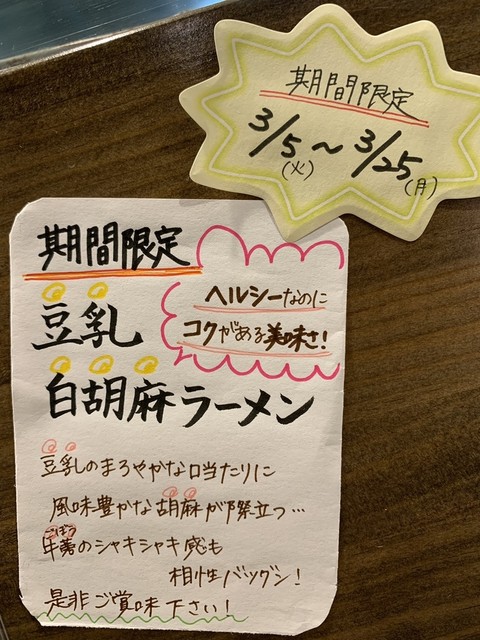 期間限定
3/5(火)～3/25(月)
期間限定
豆乳
ヘルシーなのに
コクがある美味さ!
白胡麻ラーメン
豆乳のまろやかな口当たりに
風味豊かな胡麻が際立つ…
ごぼう
牛蒡のシャキシャキ感も
相性バツグン!
是非ご賞味下さい!